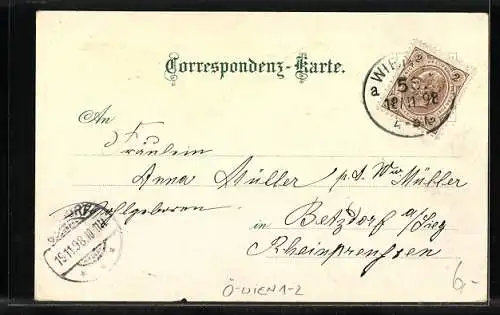 Correspondenz-Karte.
WIEN
56
a
18/11 98
2 2
An
Fräulein
Anna Müller p. A. Wwe Müller
Wohlgeboren
in Betzdorf a/Sieg
Rheinpreussen
19.11.98
Ö-WIEN 1-2
6.-